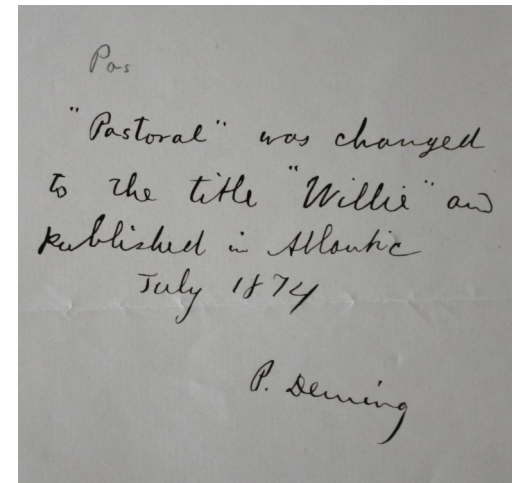 Pas
"Pastoral" was changed
to the title "Willie" and
published in Atlantic
July 1874
P. Deming